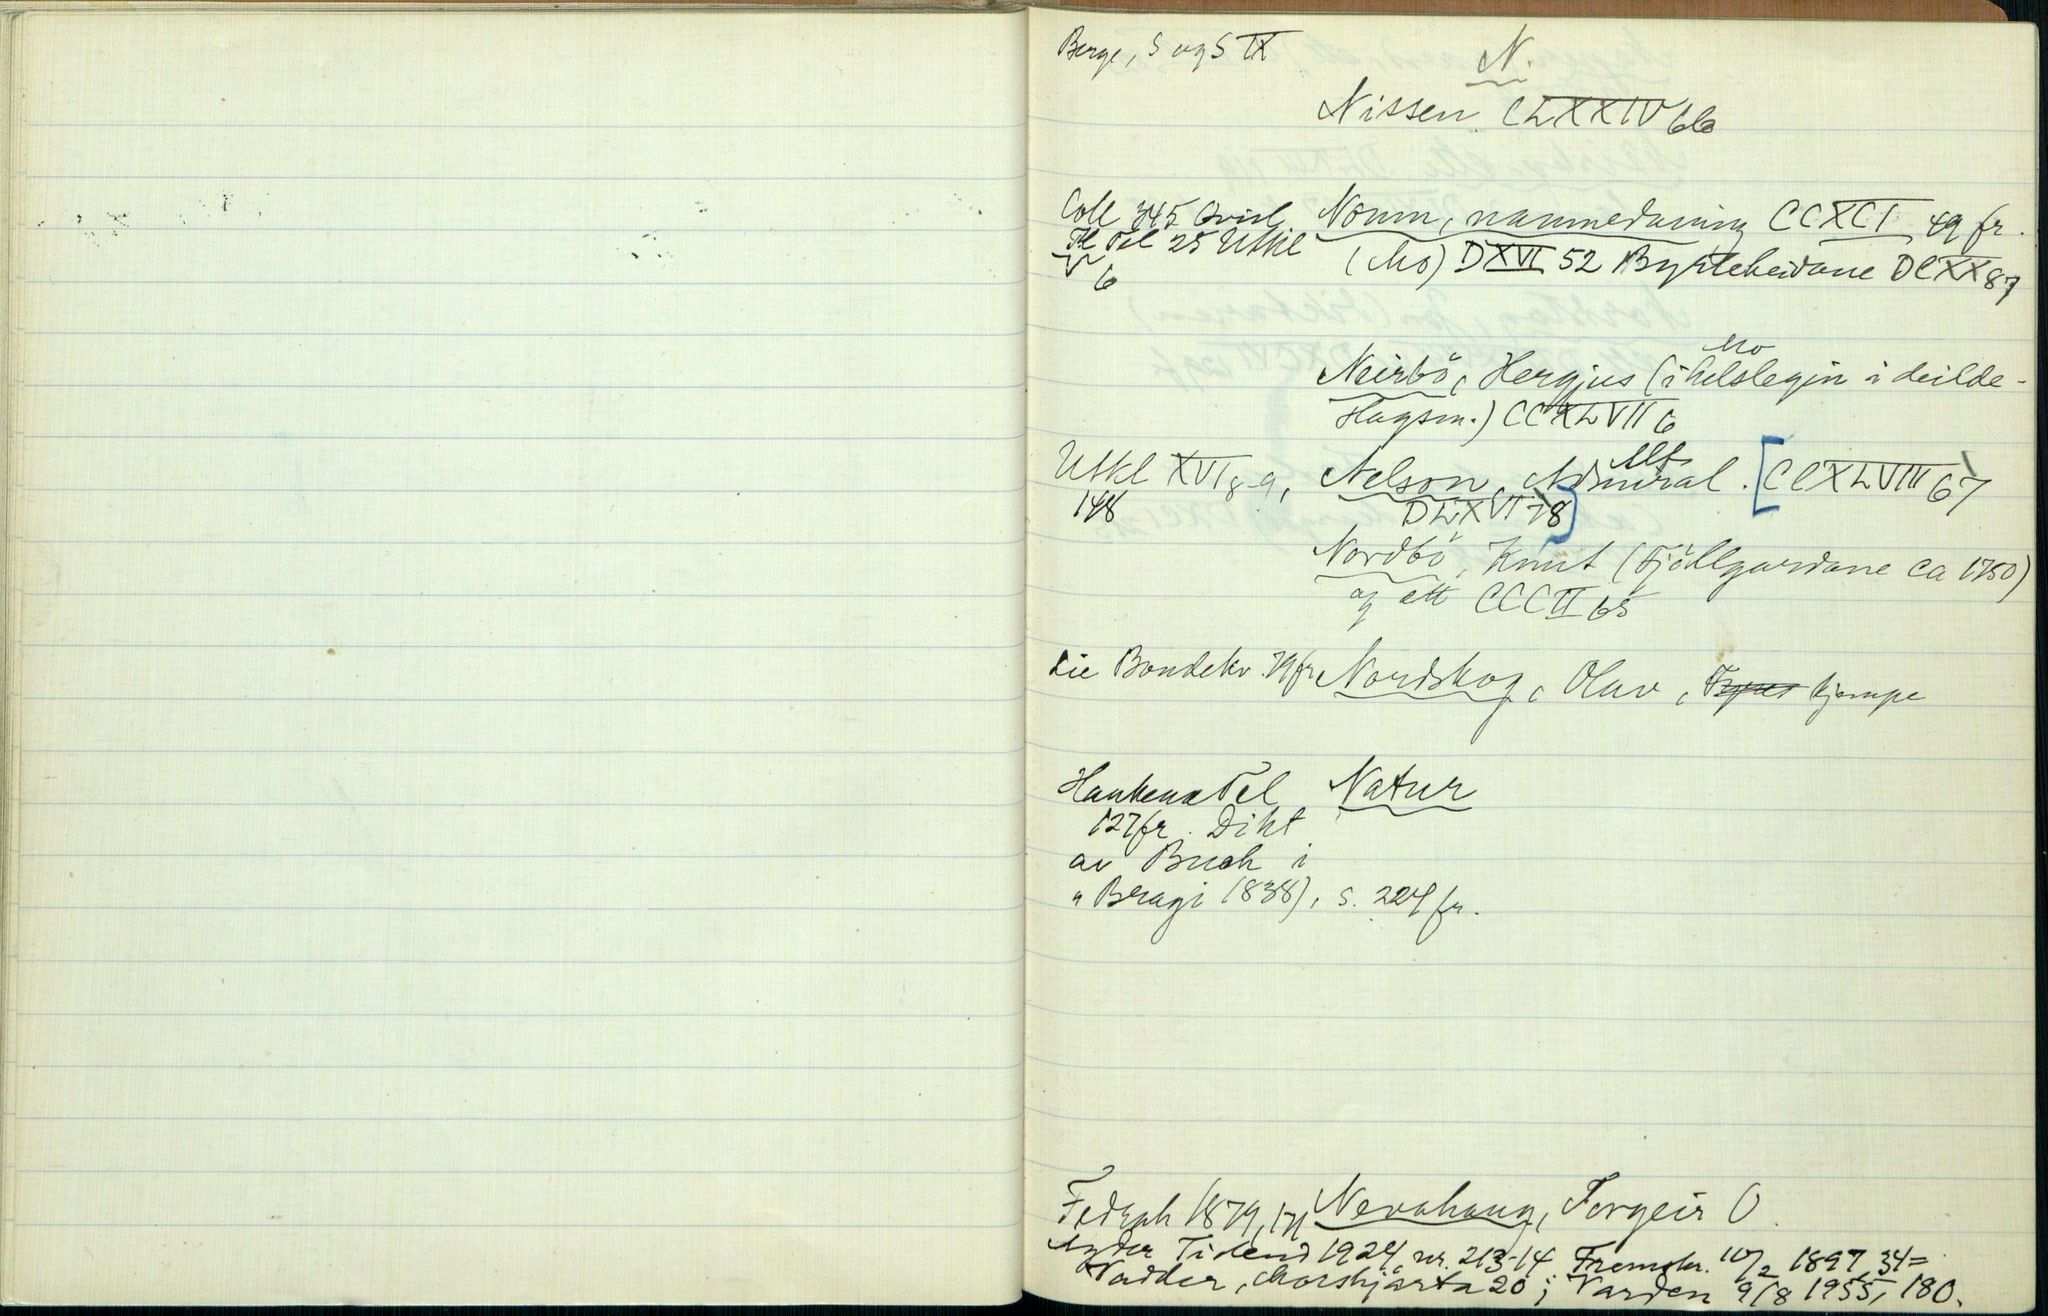 Berge, S og S IX
N.
Nissen CLXXIV 66
Coll 345 Nomm, nammedaning CCXCI 49 fr.
Tel 25 Utkl (Mo) DXVI 52 Byrteheidane DCXX 87
6
Mo
Neirbö, Hergjus (ihelslegin i deilde-
Hagsm.) CCXLVII 6
Utkl XVI 8-9, Nelson, Admiral. [CCXLVIII 67
148 DLXVI 78]
Nordbö, Knut (Fjöllgardane ca 1750)
og ætt CCCII 65
Lie Bondekv. 79 fr Nordskog, Olav, kjempe
Haukenæs Tel Natur
127 fr. Dikt
av Buch i
"Bragi 1838), s. 224 fr.
Fedrah 1879, 171 Nevahaug, Torgeir O.
Agder Tidend 1924, nr. 213-14 Fremskr. 10/2 1897, 34=
Nadder, Morshjarta 20; Varden 9/8 1955, 180.